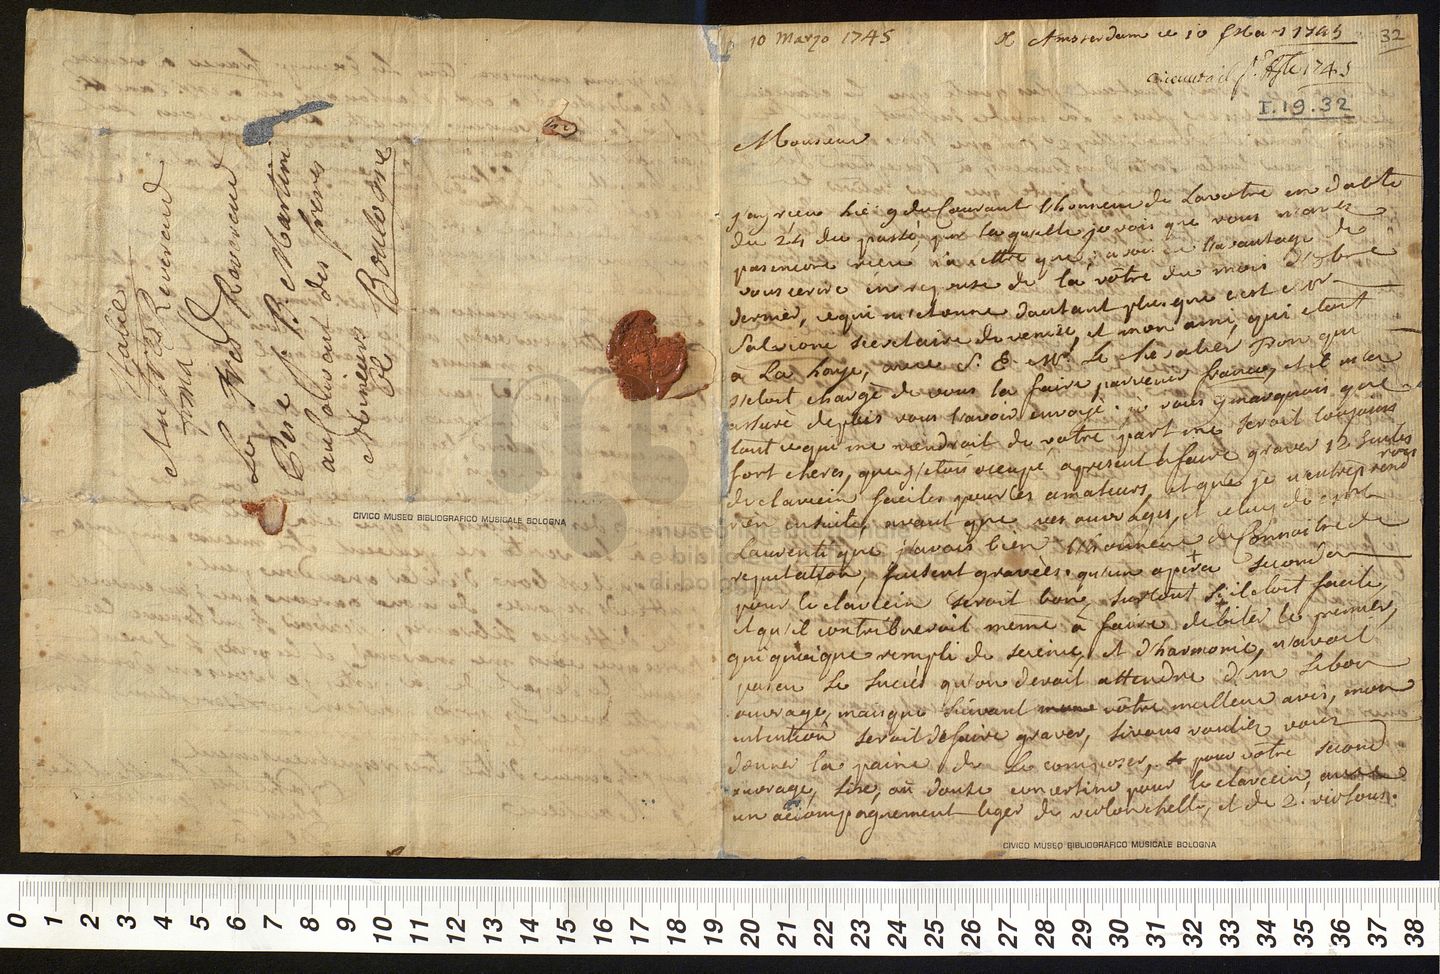 Italie
Au Tres Reverend
Frond
Le Tres Reverend
Pere J. B. Martini
au Couvent des freres
Mineurs
a Boulogne
CIVICO MUSEO BIBLIOGRAFICO MUSICALE BOLOGNA
10 Marzo 1745
Amsterdam ce 10 Mars 1745
32
1745
I.19.32
Monsieur
J'ay recu hie 9 du Courant l'honneur de La votre en datte
du 24 du passé, par la quelle je vois que vous n'avez
pas encore recu la lettre que j'avois eu l'avantage de
vous ecrire en reponse de la vôtre du mois d'8bre
dernier, ce qui m'etonne d'autant plus que c'est
secretaire de venise, et mon ami, qui etoit
a La Haye, avec S. E. Mr. Le Chevalier Tron qui
s'etoit chargé de vous la faire parvenir franco, et il m'en
assuré depuis vous l'avoir envoyé. je vous y marquois que
tout ce qui me viendroit de votre part me seroit toujours
fort cheres, que j'etois occupé apresent a faire graver 12
de clavecin faciles pour les amateurs, et que je n'entreprendrois
rien ensuite, avant que vos ouvrages, et celuy de
Laurenti que j'avois bien l'honneur de Connoitre de
reputation, fussent gravées. qu'un opera seconda
pour le clavecin seroit bone, surtout s'il etoit facile,
et qu'il contribueroit meme à faire debiter le premier,
qui quoique rempli de science, et d'harmonie, n'avoit
pas eu le succés qu'on devoit attendre d'un si bon
ouvrage, mais que suivant vôtre meilleur avis, mon
intention seroit de faire graver, si vous vouliez vous
donner la paine de le composer, pour vôtre second
ouvrage, Six, ou douze concertino pour le clavecin,
un accompagnement leger de violonchello, et de 2. violons.
CIVICO MUSEO BIBLIOGRAFICO MUSICALE BOLOGNA
museo internazionale
e biblioteca della musica
di bologna
0 1 2 3 4 5 6 7 8 9 10 11 12 13 14 15 16 17 18 19 20 21 22 23 24 25 26 27 28 29 30 31 32 33 34 35 36 37 38